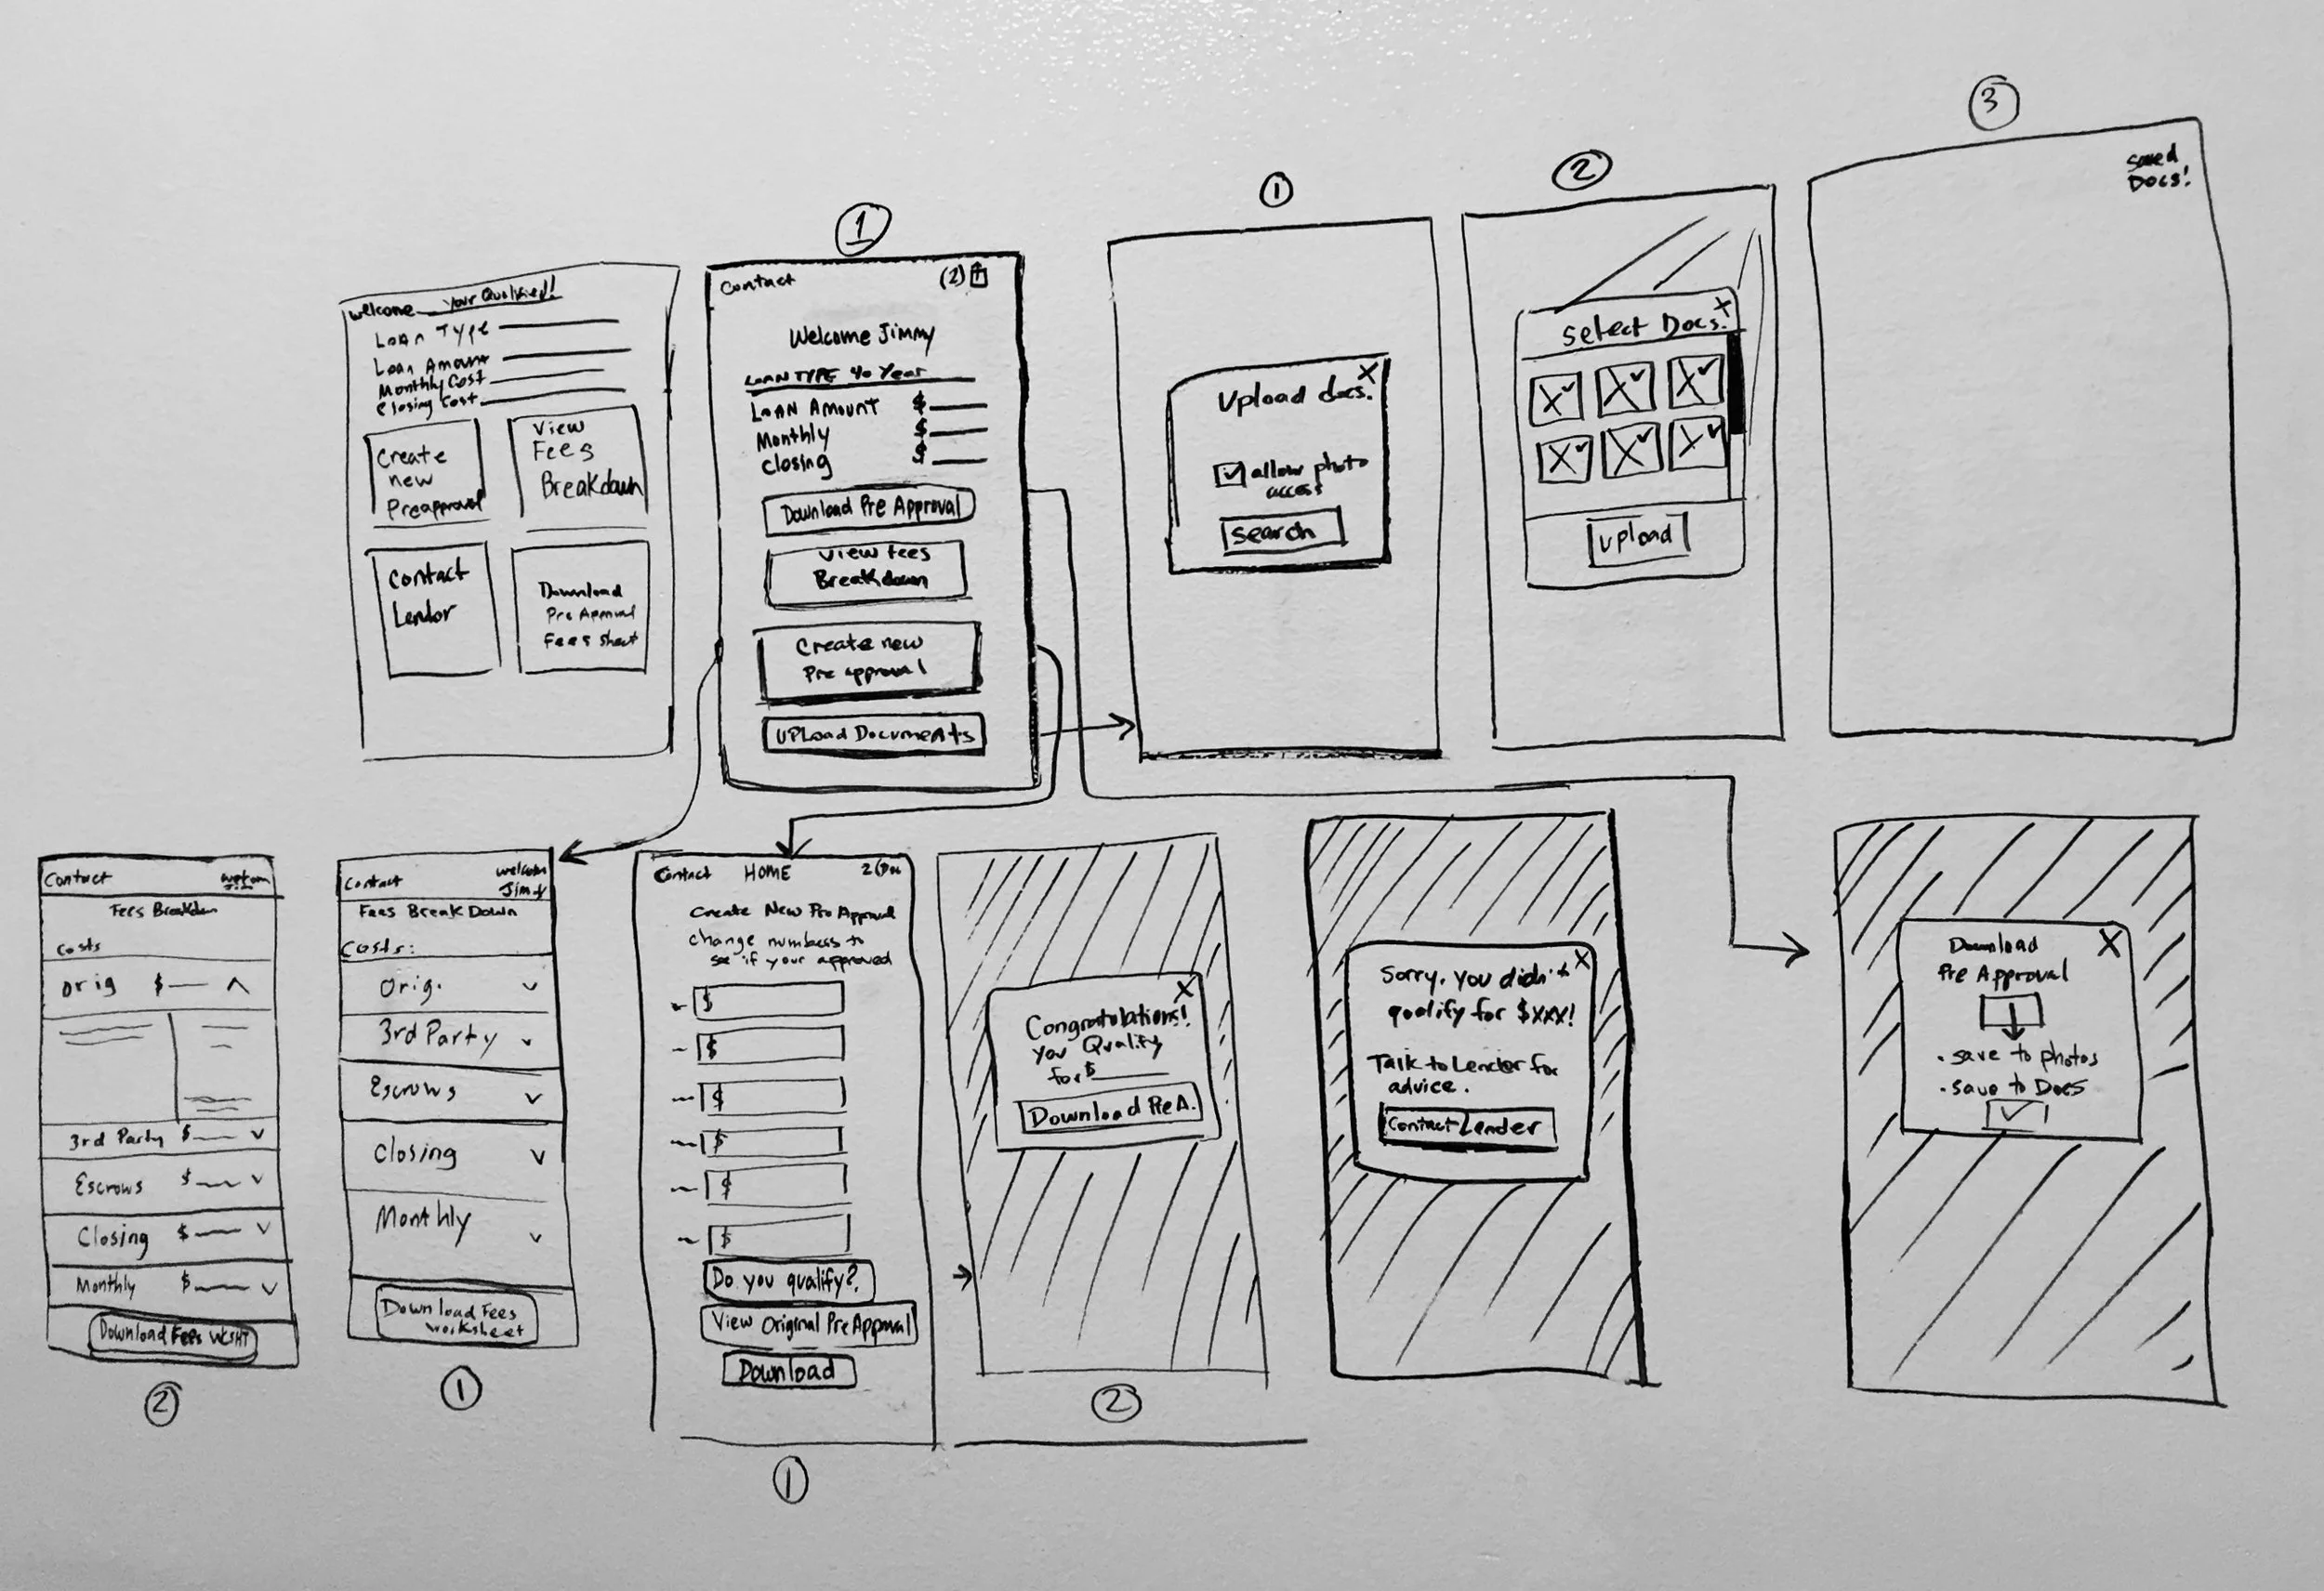 3
2
1
1
saved
Docs!
Welcome your Qualified!
Loan Type
Loan Amount
Monthly Cost
Closing Cost
Create
new
Preapproval
View
Fees
Breakdown
Contact
Lendor
Download
Pre Approval
Fees Sheet
Contact
(2)
Welcome Jimmy
LOAN TYPE 40 Year
LOAN AMOUNT $
Monthly $
Closing $
Download Pre Approval
View Fees
Breakdown
Create new
Pre approval
UPLoad Documents
X
Upload docs.
allow photo
access
Search
X
Select Docs.
Upload
Contact
Fees Breakdwn
Costs
Orig $
3rd Party $
Escrows $
Closing $
Monthly $
Download Fees WKSHT
2
Contact
welcome
Jimmy
Fees Break Down
Costs:
Orig.
3rd Party
Escrows
Closing
Monthly
Download Fees
Worksheet
1
Contact HOME
Create New Pre Approval
change numbers to
see if your approved
$
$
$
$
$
$
Do you qualify?
View Original Pre Approval
Download
1
X
Congratulations!
You Qualify
for $
Download Pre A.
2
X
Sorry, you didn't
qualify for $xxx!
Talk to Lender for
advice.
Contact Lender
X
Download
Pre Approval
• save to photos
• save to Docs